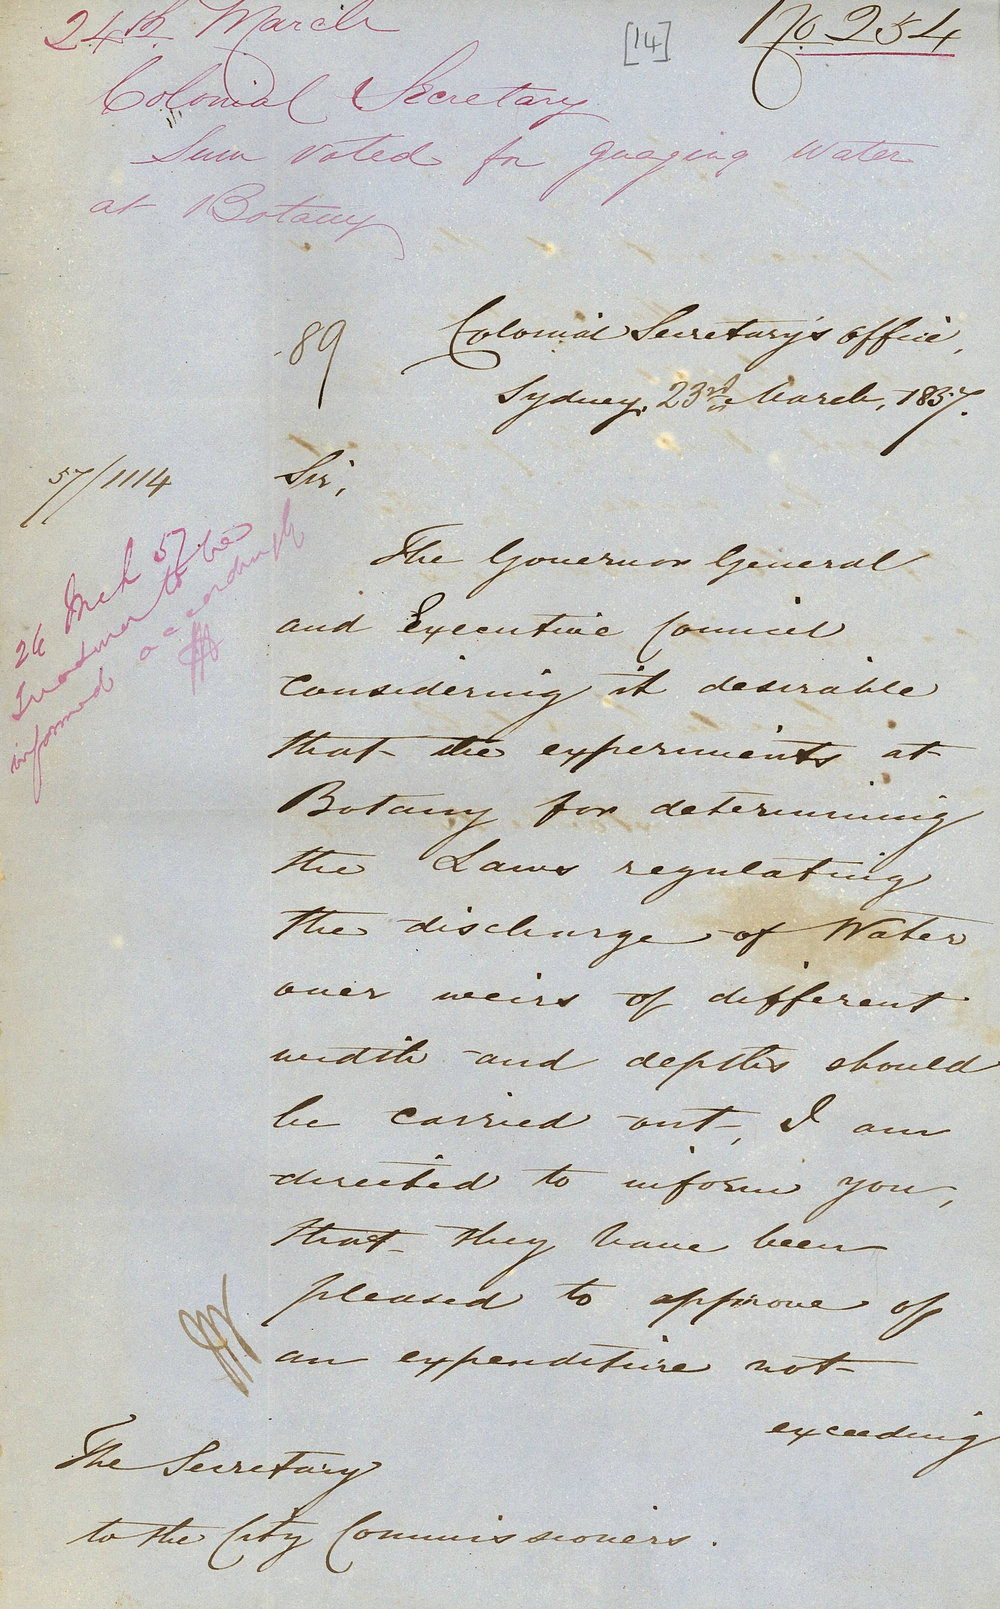 24th March
[14]
No 254
Colonial Secretary
Sum voted for guaging Water
at Botany
89
Colonial Secretary's Office,
Sydney, 23rd March, 1857.
57/1114
Sir,
26 Mch 57.
to be
informed accordingly
The Governor General
and Executive Council
considering it desirable
that the experiments at
Botany for determining
the Laws regulating
the discharge of Water
over weirs of different
width and depths should
be carried out, I am
directed to inform you,
that they have been
pleased to approve of
an expenditure not
exceeding
The Secretary
to the City Commissioners.